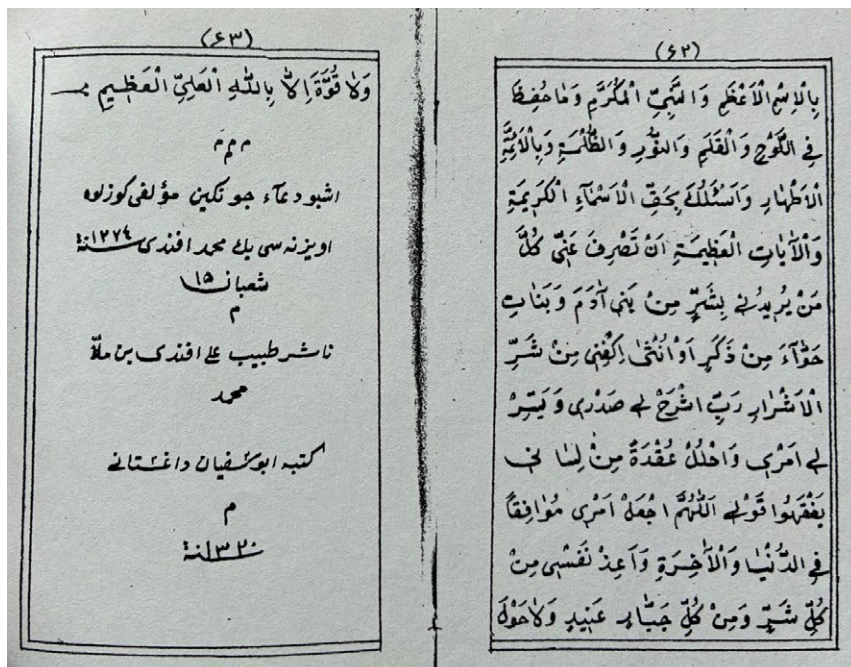 (٦٢)
بِالْاِسْمِ الْاَعْظَمِ وَالنَّبِىِّ الْمُكَرَّمِ وَمَا حُفِظَ
فِى اللَّوْحِ وَالْقَلَمِ وَالنُّورِ وَالظُّلْمَةِ وَبِالْاَئِمَّةِ
الْاَطْهَارِ وَاَسْئَلُكَ بِحَقِّ الْاَسْمَآءِ الْكَرِيمَةِ
وَالْاٰيَاتِ الْعَظِيمَةِ اَنْ تَصْرِفَ عَنِّى كُلَّ
مَنْ يُرِيدُنِى بِشَرٍّ مِنْ بَنِى آدَمَ وَبَنَاتِ
حَوَّآءَ مِنْ ذَكَرٍ اَوْ اُنْثٰى اِكْفِنِى مِنْ شَرِّ
الْاَشْرَارِ رَبِّ اشْرَحْ لِى صَدْرِى وَيَسِّرْ
لِى اَمْرِى وَاحْلُلْ عُقْدَةً مِنْ لِسَانِى
يَفْقَهُوا قَوْلِى اَللّٰهُمَّ اجْعَلْ اَمْرِى مُوَافِقاً
فِى الدُّنْيَا وَالْاٰخِرَةِ وَاَعِذْ نَفْسِى مِنْ
كُلِّ شَرٍّ وَمِنْ كُلِّ جَبَّارٍ عَنِيدٍ وَلَا حَوْلَ
(٦٣)
وَلَا قُوَّةَ اِلَّا بِاللّٰهِ الْعَلِىِّ الْعَظِيمِ
م م م
اشبو دعآء جوتكين مؤلفى كوزلوه
اويزنه سى بك محمد افندى سنة ١٢٧٤
شعبان ١٥
م
ناشر طبيب على افندى بن ملّا
محمد
كتبه ابو سفيان داغستانى
م
سنة ١٣٢٠